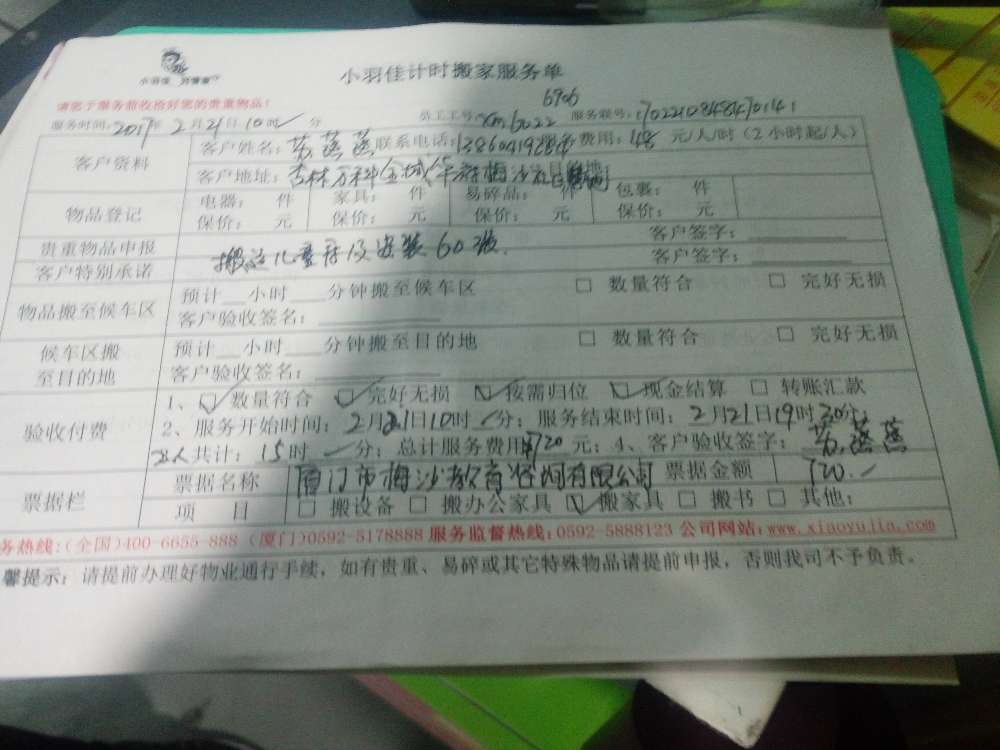 小羽佳计时搬家服务单
请您于服务前收拾好您的贵重物品!
6906
服务时间: 2017年 2月21日10时 分 员工工号: xm6022 服务联号:
客户资料
客户姓名: 苏燕燕 联系电话: 服务费用: 48 元/人/时(2小时起/人)
客户地址: 杏林万科金域华府梅沙 目的地:
物品登记
电器: 件 家具: 件 易碎品: 件 包裹: 件
保价: 元 保价: 元 保价: 元 保价: 元
贵重物品申报 客户签字:
客户特别承诺 搬运儿童床及安装60张. 客户签字:
物品搬至候车区
预计 小时 分钟搬至候车区 □ 数量符合 □ 完好无损
客户验收签名:
候车区搬至目的地
预计 小时 分钟搬至目的地 □ 数量符合 □ 完好无损
客户验收签名:
验收付费
1、☑数量符合 ☑完好无损 ☑按需归位 ☑现金结算 □ 转账汇款
2、服务开始时间: 2月21日10时 分; 服务结束时间: 2月21日19时30分;
人共计: 15时 分; 总计服务费用¥720元; 4、客户验收签字: 苏燕燕
票据栏
票据名称 厦门市梅沙教育咨询有限公司 票据金额 720.-
项 目 □ 搬设备 □ 搬办公家具 ☑ 搬家具 □ 搬书 □ 其他:
务热线:(全国)400-6655-888 (厦门)0592-5178888 服务监督热线:0592-5888123 公司网站:www.xiaoyujia.com
馨提示: 请提前办理好物业通行手续，如有贵重、易碎或其它特殊物品请提前申报，否则我司不予负责。